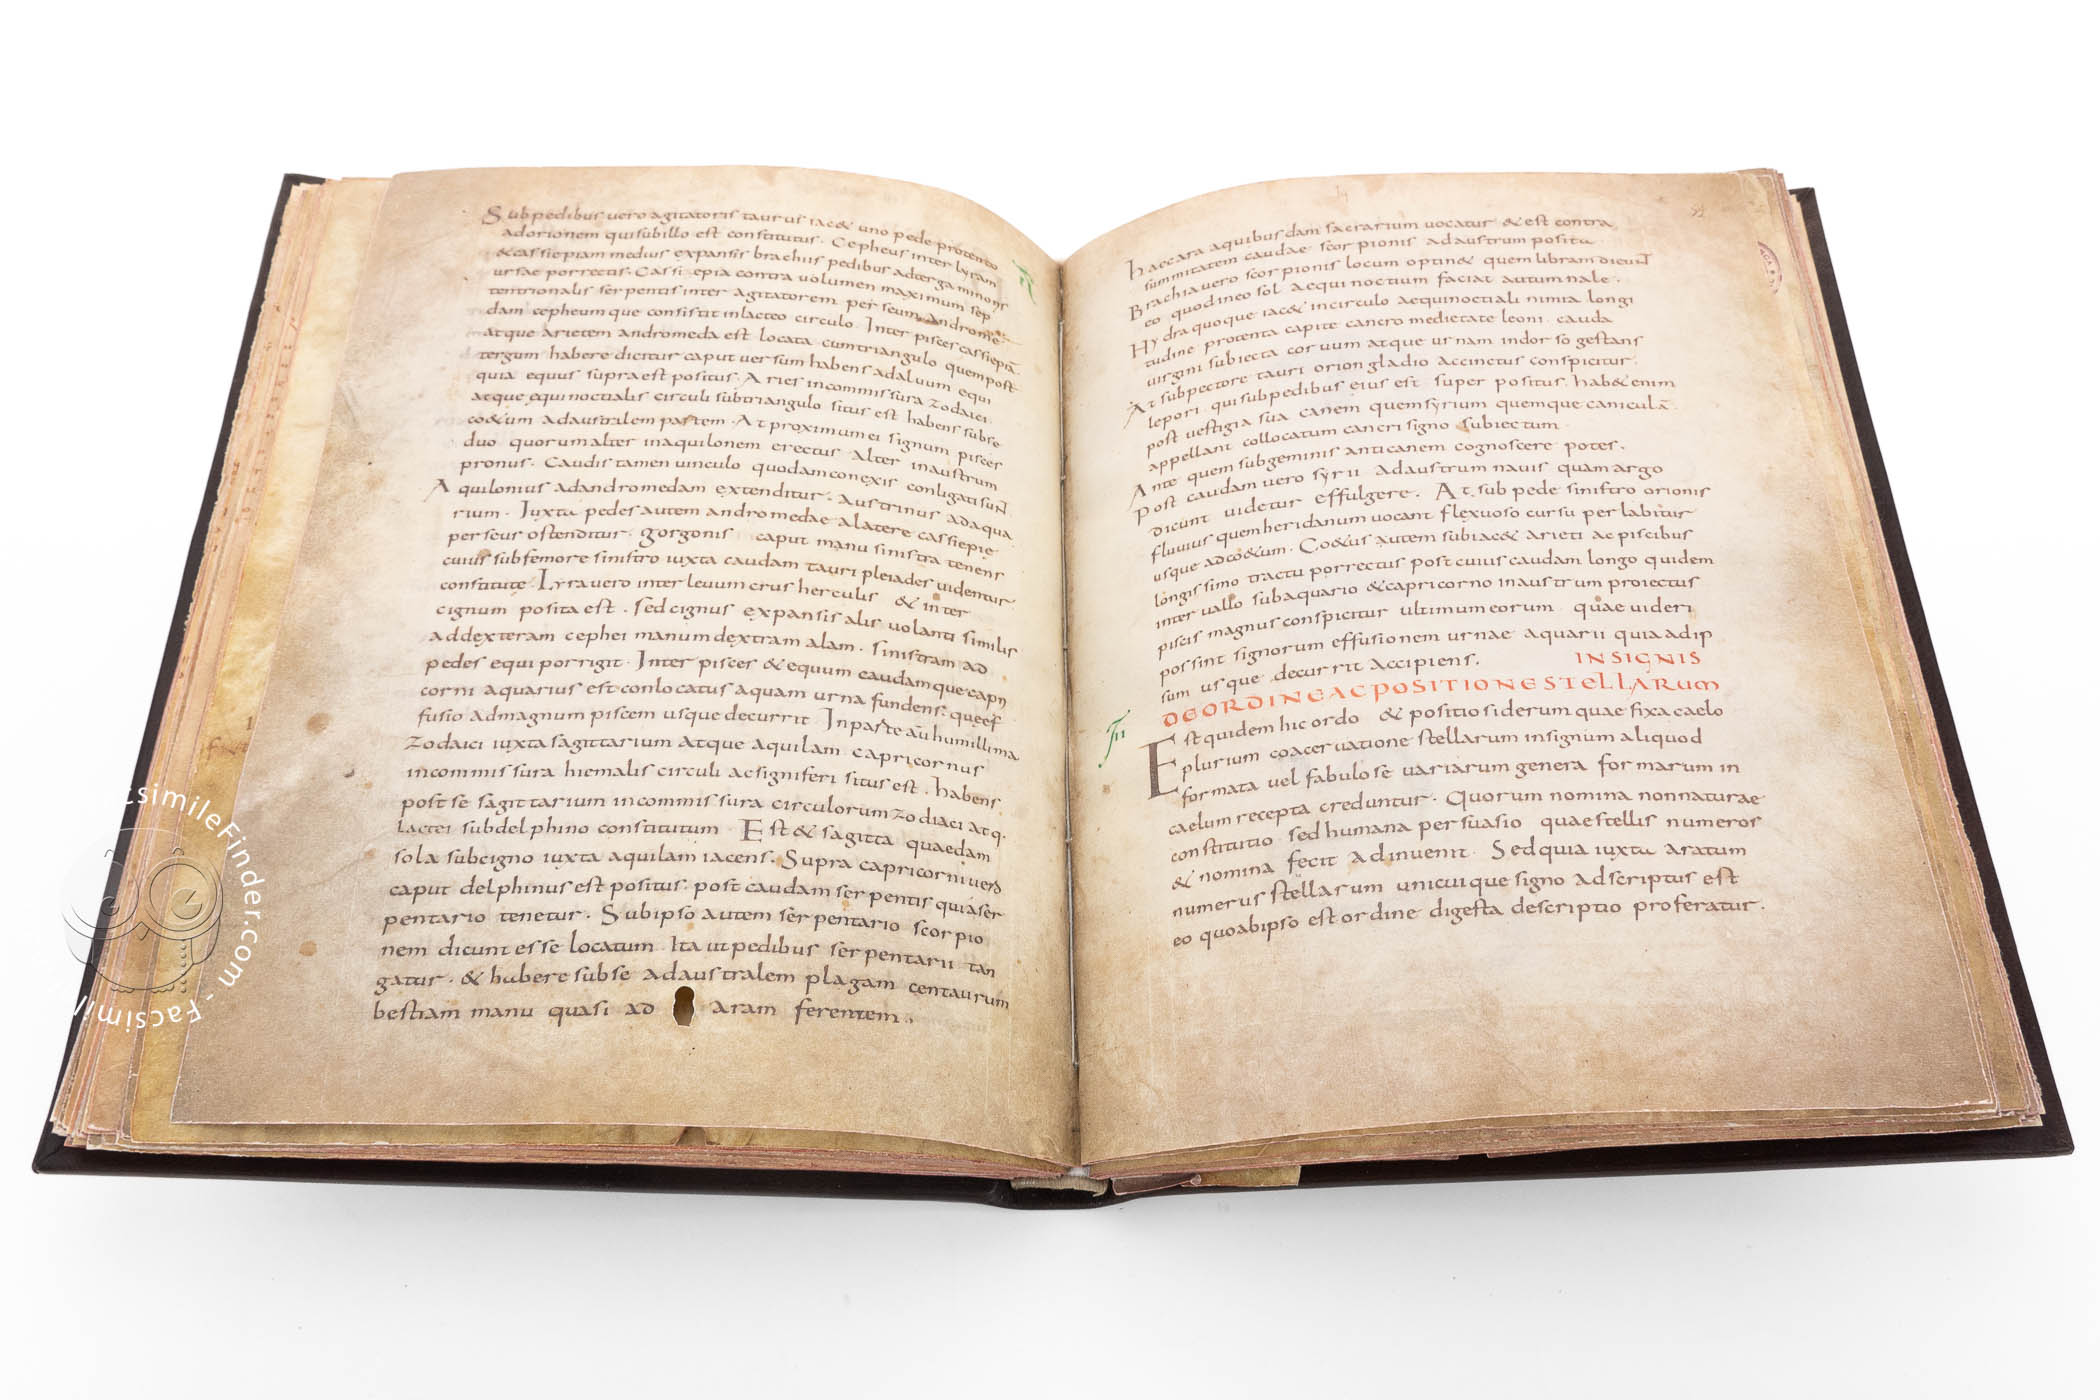 Sub pedibus vero agitatoris taurus iac& uno pede protento
ad orionem qui subillo est constitutus. Cepheus inter lyram
& cassiepiam medius expansis brachiis pedibus ad terga minoris
ursae porrectis. Cassiepia contra volumen maximum sep
tentrionalis serpentis inter agitatorem perseum andromе
dam cepheumque consistit in lacteo circulo. Inter pisces cassiepiā
atque arietem andromeda est locata cum triangulo quem post
tergum habere dicitur caput versum habens ad aluum equi
quia equus supra est positus. Aries in commissura zodaici
atque equinoctialis circuli sub triangulo situs est habens subse
co&um ad australem partem. At proximum ei signum pisces
duo quorum alter in aquilonem erectus alter in austrum
pronus. Caudis tamen vinculo quodam conexis conligati sun̄
Aquilonius ad andromedam extenditur. austrinus ad aqua
rium. Iuxta pedes autem andromedae a latere cassiepie
perseus ostenditur. gorgonis caput manu sinistra tenens
cuius sub femore sinistro iuxta caudam tauri pleiades videntur
constitute. Lyra vero inter levum crus herculis & inter
cignum posita est. sed cignus expansis alis volanti similis
ad dexteram cephei manum dextram alam. sinistram ad
pedes equi porrigit. Inter pisces & equum caudamque capri
corni aquarius est conlocatus aquam urna fundens. que ef
fusio ad magnum piscem usque decurrit In parte aū humillima
zodaici iuxta sagittarium atque aquilam capricornus
in commissura hiemalis circuli ac signiferi situs est. habens
post se sagittarium in commissura circulorum zodiaci atq.
lactei sub delphino constitutum Est & sagitta quaedam
sola sub cigno iuxta aquilam iacens. Supra capricorni vero
caput delphinus est positus. post caudam serpentis qui a ser
pentario tenetur. Sub ipso autem serpentario scorpio
nem dicunt esse locatum Ita ut pedibus serpentarii tan
gatur. & habere subse ad australem plagam centaurum
bestiam manu quasi ad aram ferentem.
haec ara a quibusdam sacrarium vocatur & est contra
summitatem caudae scorpionis ad austrum posita
Brachia vero scorpionis locum optin& quem libram dicun̄t
eo quod in eo sol aequinoctium faciat autumnale.
Hydra quoque iac& in circulo aequinoctiali nimia longi
tudine protenta capite cancro medietate leoni cauda
virgini subiecta corvum atque urnam in dorso gestans
At sub pectore tauri orion gladio accinctus conspicitur.
lepori qui sub pedibus eius est super positus. hab& enim
post vestigia sua canem quem syrium quemque caniculā
appellant collocatum cancri signo subiectum
Ante quem sub geminis anticanem cognoscere potes.
Post caudam vero syrii ad austrum navis quam argo
dicunt videtur effulgere. At sub pede sinistro orionis
fluvius quem heridanum vocant flexuoso cursu perlabitur
usque ad co&um. Co&us autem subiac& arieti ac piscibus
longissimo tractu porrectus post cuius caudam longo quidem
intervallo sub aquario & capricorno in austrum proiectus
piscis magnus conspicitur ultimum eorum quae videri
possint signorum effusionem urnae aquarii quia adip
sum usque decurrit accipiens. IN SIGNIS
DE ORDINE AC POSITIONE STELLARUM
Est quidem hic ordo & positio siderum quae fixa caelo
plurium coacervatione stellarum insignum aliquod
formata vel fabulose variarum genera formarum in
caelum recepta creduntur. Quorum nomina non naturae
constitutio sed humana persuasio quae stellis numeros
& nomina fecit adinvenit. Sed quia iuxta aratum
numerus stellarum unicuique signo adscriptus est
eo quo ab ipso est ordine digesta descriptio proferatur.
FacsimileFinder.com - Facsimil